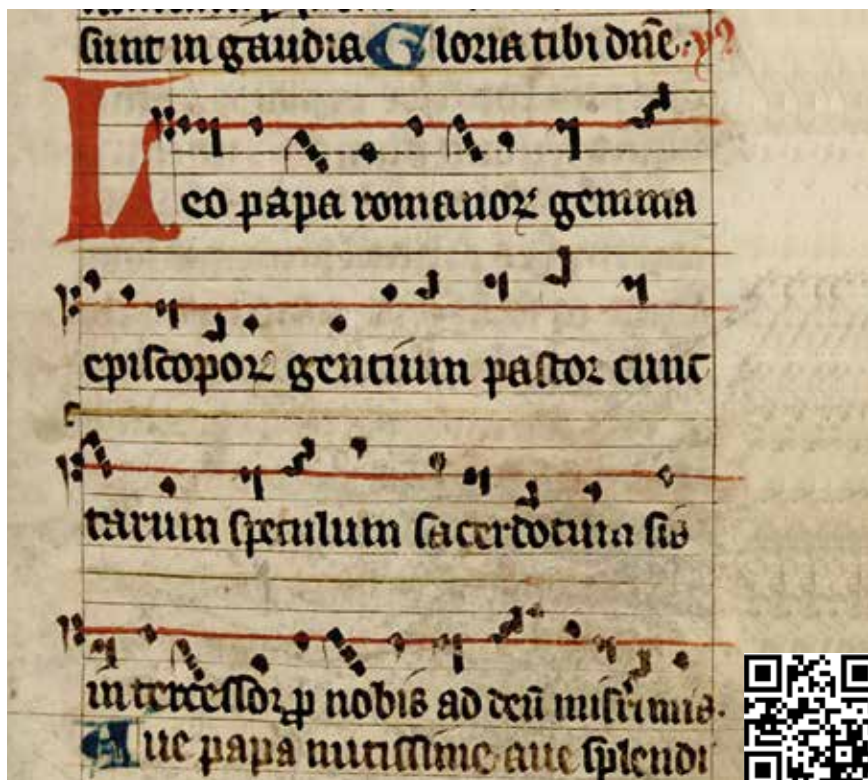 sunt in gaudia Gloria tibi dn̄e.
Leo papa romanoꝝ gemma
episcopoꝝ gentium pastor cunc
tarum speculum sacerdotum sis
intercessor ꝓ nobis ad deū
Aue papa mitissime aue splendi